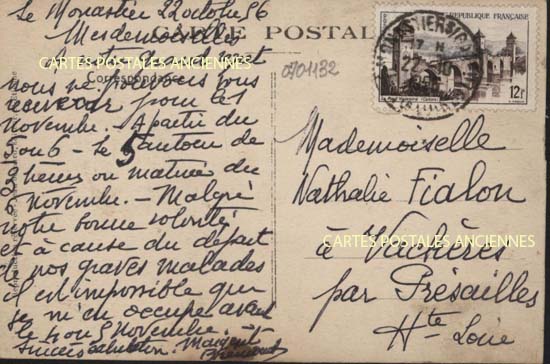 Le Monastier 22 octobre 56
Mesdemoiselles
CARTE POSTALE
CARTES POSTALES ANCIENNES
Correspondance
nous ne pouvons vous
recevoir pour le 1
Novembre. - A partir du
5 ou 6 - le 5 autour de
heures ou matinée du
Novembre. - Malgré
notre bonne volonté
et à cause du départ
de nos graves malades
il est impossible que
je m'en occupe avant
le 4 ou 5 Novembre.
0701132
REPUBLIQUE FRANÇAISE
12f
22-10
Mademoiselle
Nathalie Fialon
à Vachères
CARTES POSTALES ANCIENNES
par Présailles
Hte Loire